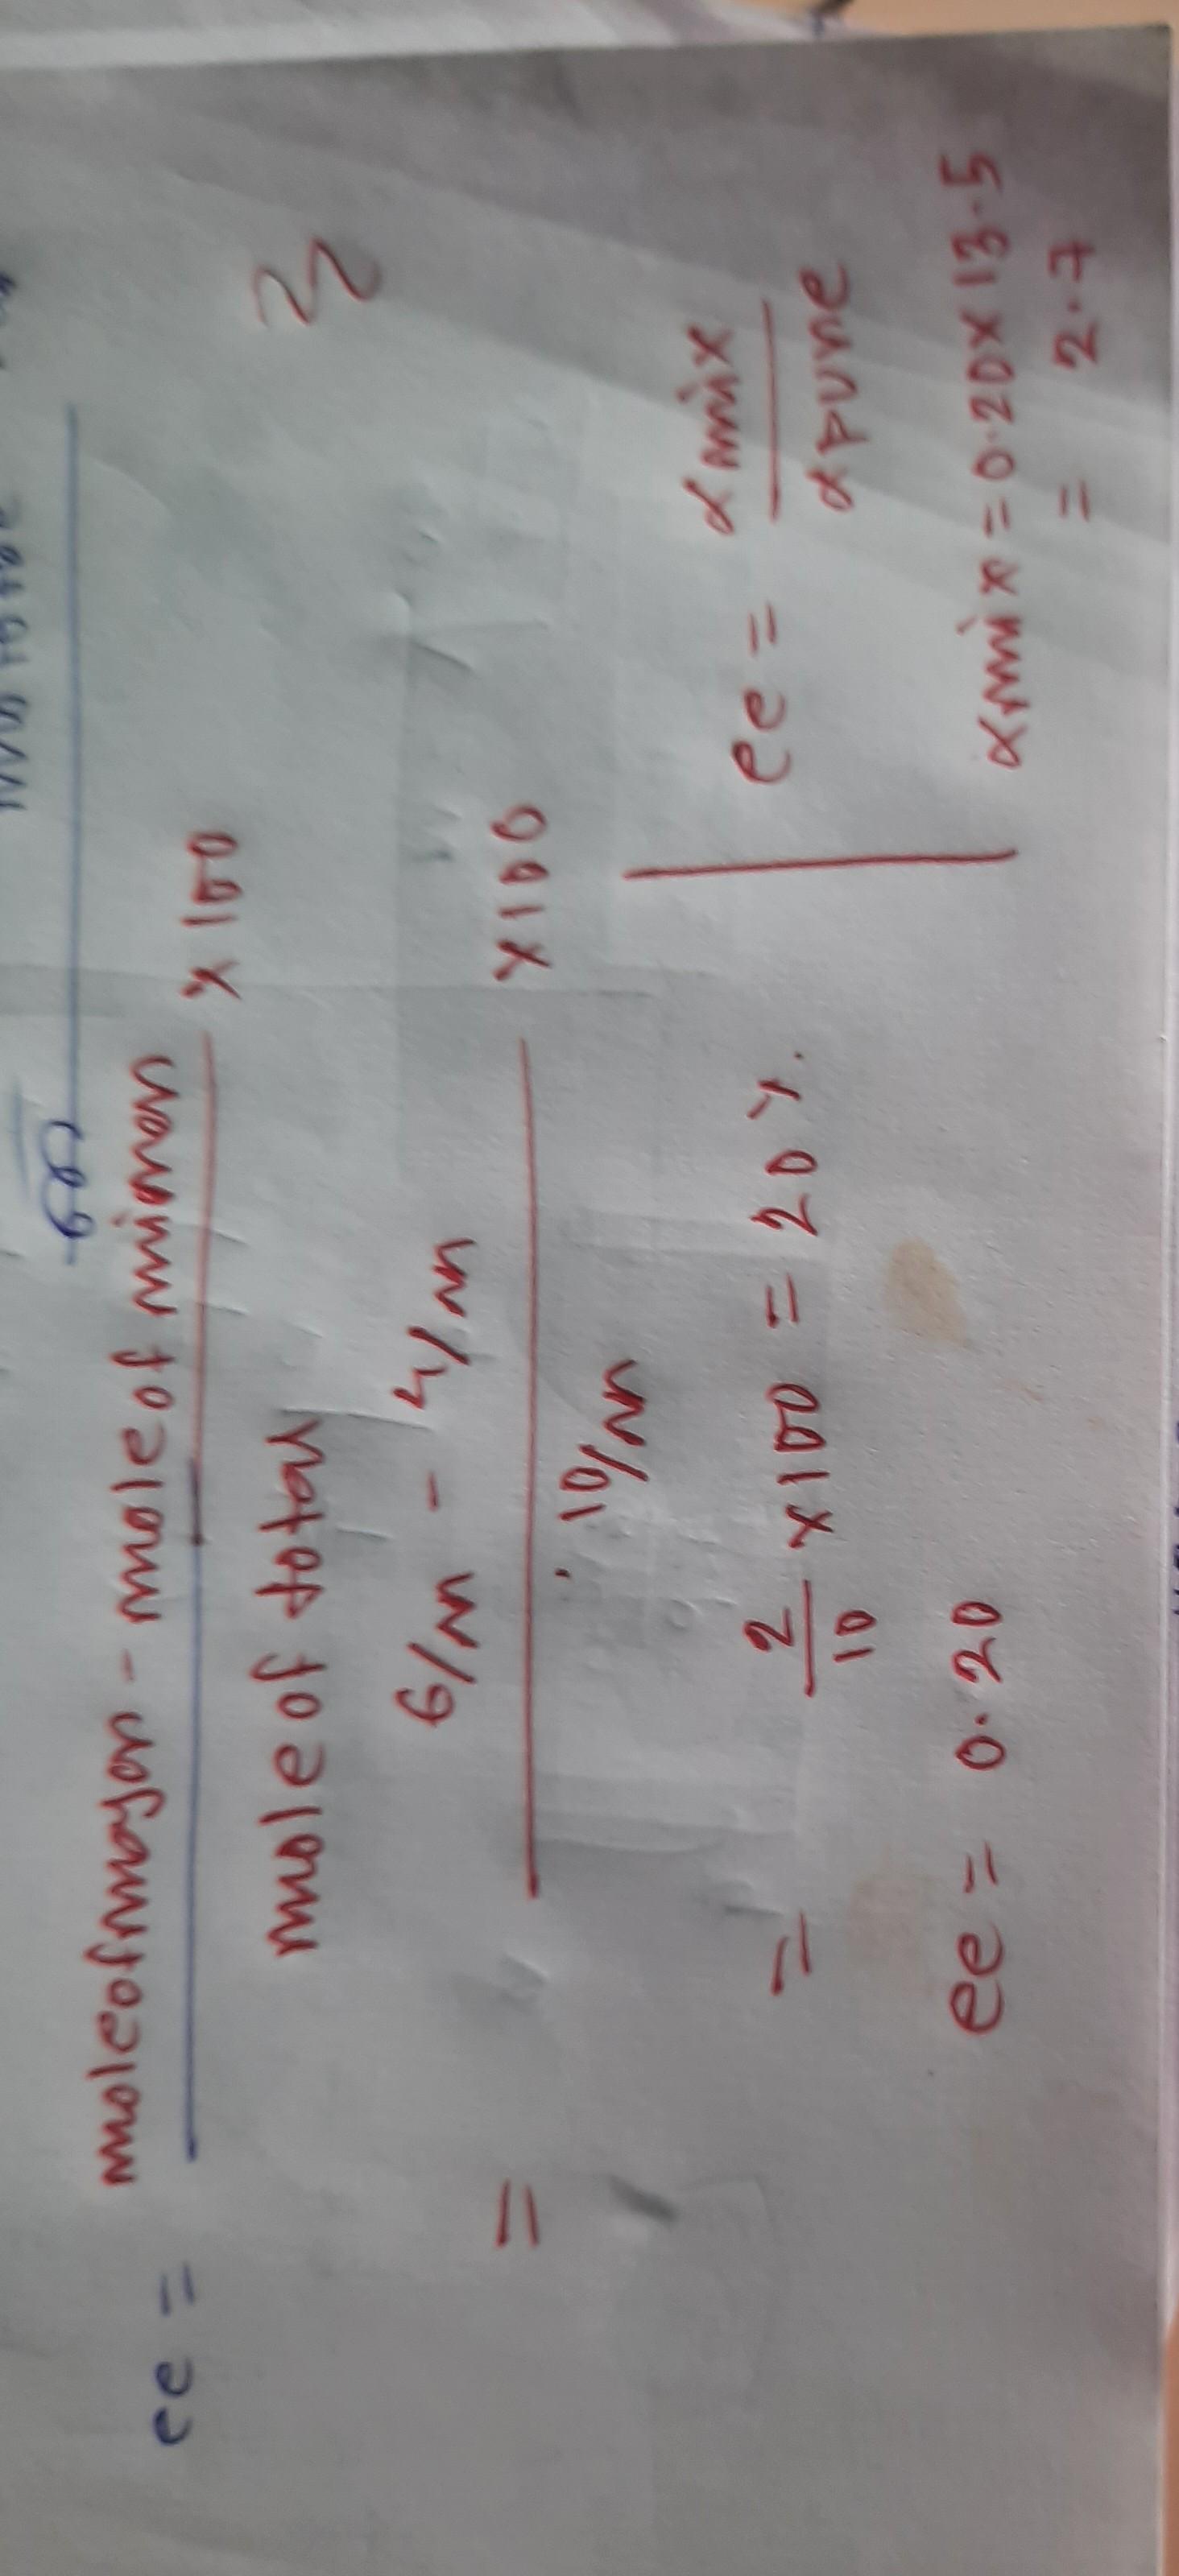 ee = moleofmajor - mole of minor × 100
mole of total
= 6/m - 4/m × 100
10/m
= 2/10 × 100 = 20 %.
ee = 0.20
ee = α mix / α pure
α mix = 0.20 × 13.5
= 2.7